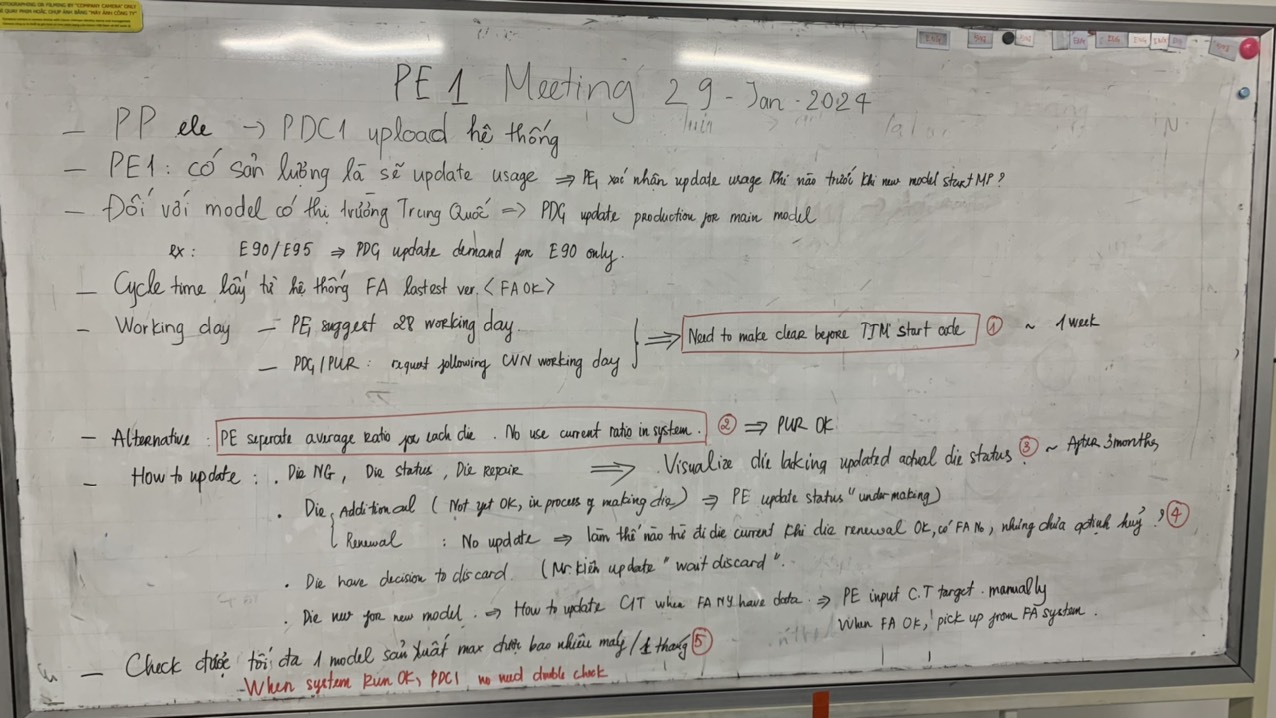 PHOTOGRAPHING OR FILMING BY "COMPANY CAMERA" ONLY
CHỤP ẢNH BẰNG "MÁY ẢNH CÔNG TY"
PE1 Meeting 29-Jan-2024
- PP ele → PDC1 upload hệ thống
- PE1: có sản lượng là sẽ update usage ⇒ PE1 xác nhận update usage khi nào trước khi new model start MP?
- Đối với model có thị trường Trung Quốc => PDC1 update production for main model
ex: E90/E95 ⇒ PDC1 update demand for E90 only.
- Cycle time lấy từ hệ thống FA lastest ver. <FA OK>
- Working day - PE1 suggest 28 working day.
- PDC1/PUR: request following CVN working day
⇒ Need to make clear before TTM start code ① ~ 1 week
- Alternative: PE seperate average Ratio for each die. No use current ratio in system. ② ⇒ PUR OK
- How to update: . Die NG, Die status, Die Repair ⇒ Visualize die laking updated actual die status ? ③ ~ After 3 months
. Die Additional (Not yet OK, in process of making die) ⇒ PE update status "under making)
Renewal : No update ⇒ làm thế nào trừ đi die current khi die renewal OK, có FA No, nhưng chưa qđịnh huỷ ? ④
. Die have decision to discard. (Mr. Kiên update "wait discard".
. Die new for new model. ⇒ How to update C/T when FA NY have data. ⇒ PE input C.T target. manually
When FA OK, pick up from FA system.
- Check được tối đa 1 model sản xuất max được bao nhiêu máy/1 tháng ⑤
When system Run OK, PDC1 no need double check